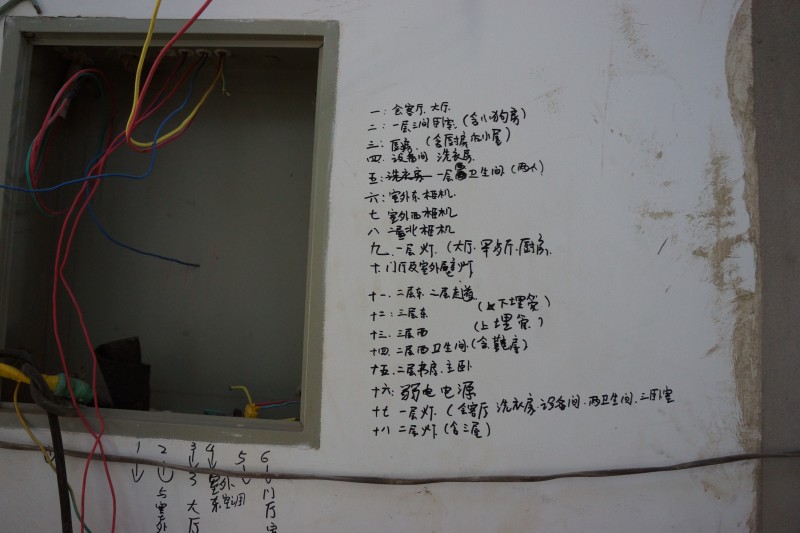 一：会客厅.大厅.
二：一层三间卧室.(含小狗房)
三：厨房.(含厨房内小屋)
四.设备间 洗衣房.
五：一层卫生间.(两个)
六：室外东柜机.
七 室外西柜机
八 二层北柜机
九.一层灯.(大厅.早点厅.厨房.
十.门厅及室外壁灯
十一.二层东 二层走道.
十二：三层东 (上下埋管)
十三.三层西 (上埋管)
十四.二层西卫生间.(含鞋房)
十五.二层书房.主卧
十六：弱电电源
十七 一层灯.(会客厅 洗衣房.设备间.两卫生间.三卧室
十八 二层灯(含三层)
1↓
2↓与室外
3↓3大厅
4↓室外东空调
5↓
6↓门厅室